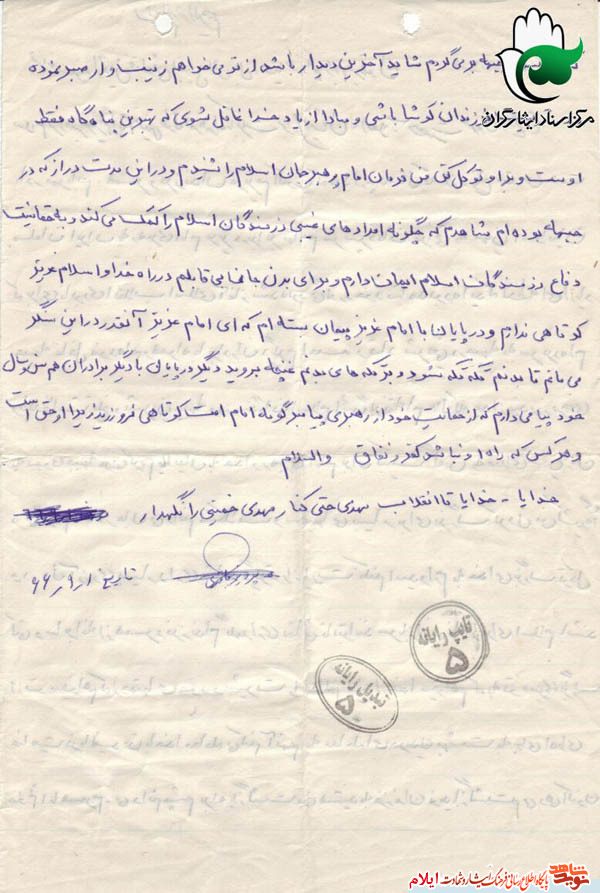 مرکز اسناد ایثارگران
جبهه برمی گردم شاید آخرین دیدار باشد از تو می خواهم زینب وار صبر نموده
فرزندان کوشا باشی و مبادا از یاد خدا غافل شوی که بهترین پناهگاه فقط
اوست و به او توکل کن من فرمان امام و رهبر جان اسلام را شنیدم و در این مدت دراز که در
جبهه بوده ام شاهدم که چگونه امدادهای غیبی رزمندگان اسلام را کمک می کند و به حقانیت
دفاع رزمندگان اسلام ایمان دارم و برای بدن جانم قابلم در راه خدا و اسلام عزیز
کوتاهی ندارم و در پایان با امام عزیز پیمان بسته ام که ای امام عزیز آنقدر در این سنگر
می مانم تا بدنم تکه تکه شود و بر تکه های بدنم غنچه بروید دیگر در پایان با دیگر برادران هم سن و سال
خود پیامی دارم که از حمایت خود از رهبری پیامبرگونه امام امت کوتاهی نورزید زیرا او حق است
و هر کس که راه او نباشد کفر و نفاق والسلام
خدایا - خدایا تا انقلاب مهدی حتی کنار مهدی خمینی را نگهدار
تاریخ ۶۶/۹/۱
تایپ رایانه
۵
تبدیل رایانه
۵
نوید شاهد
پایگاه اطلاع رسانی فرهنگ ایثار و شهادت ایلام